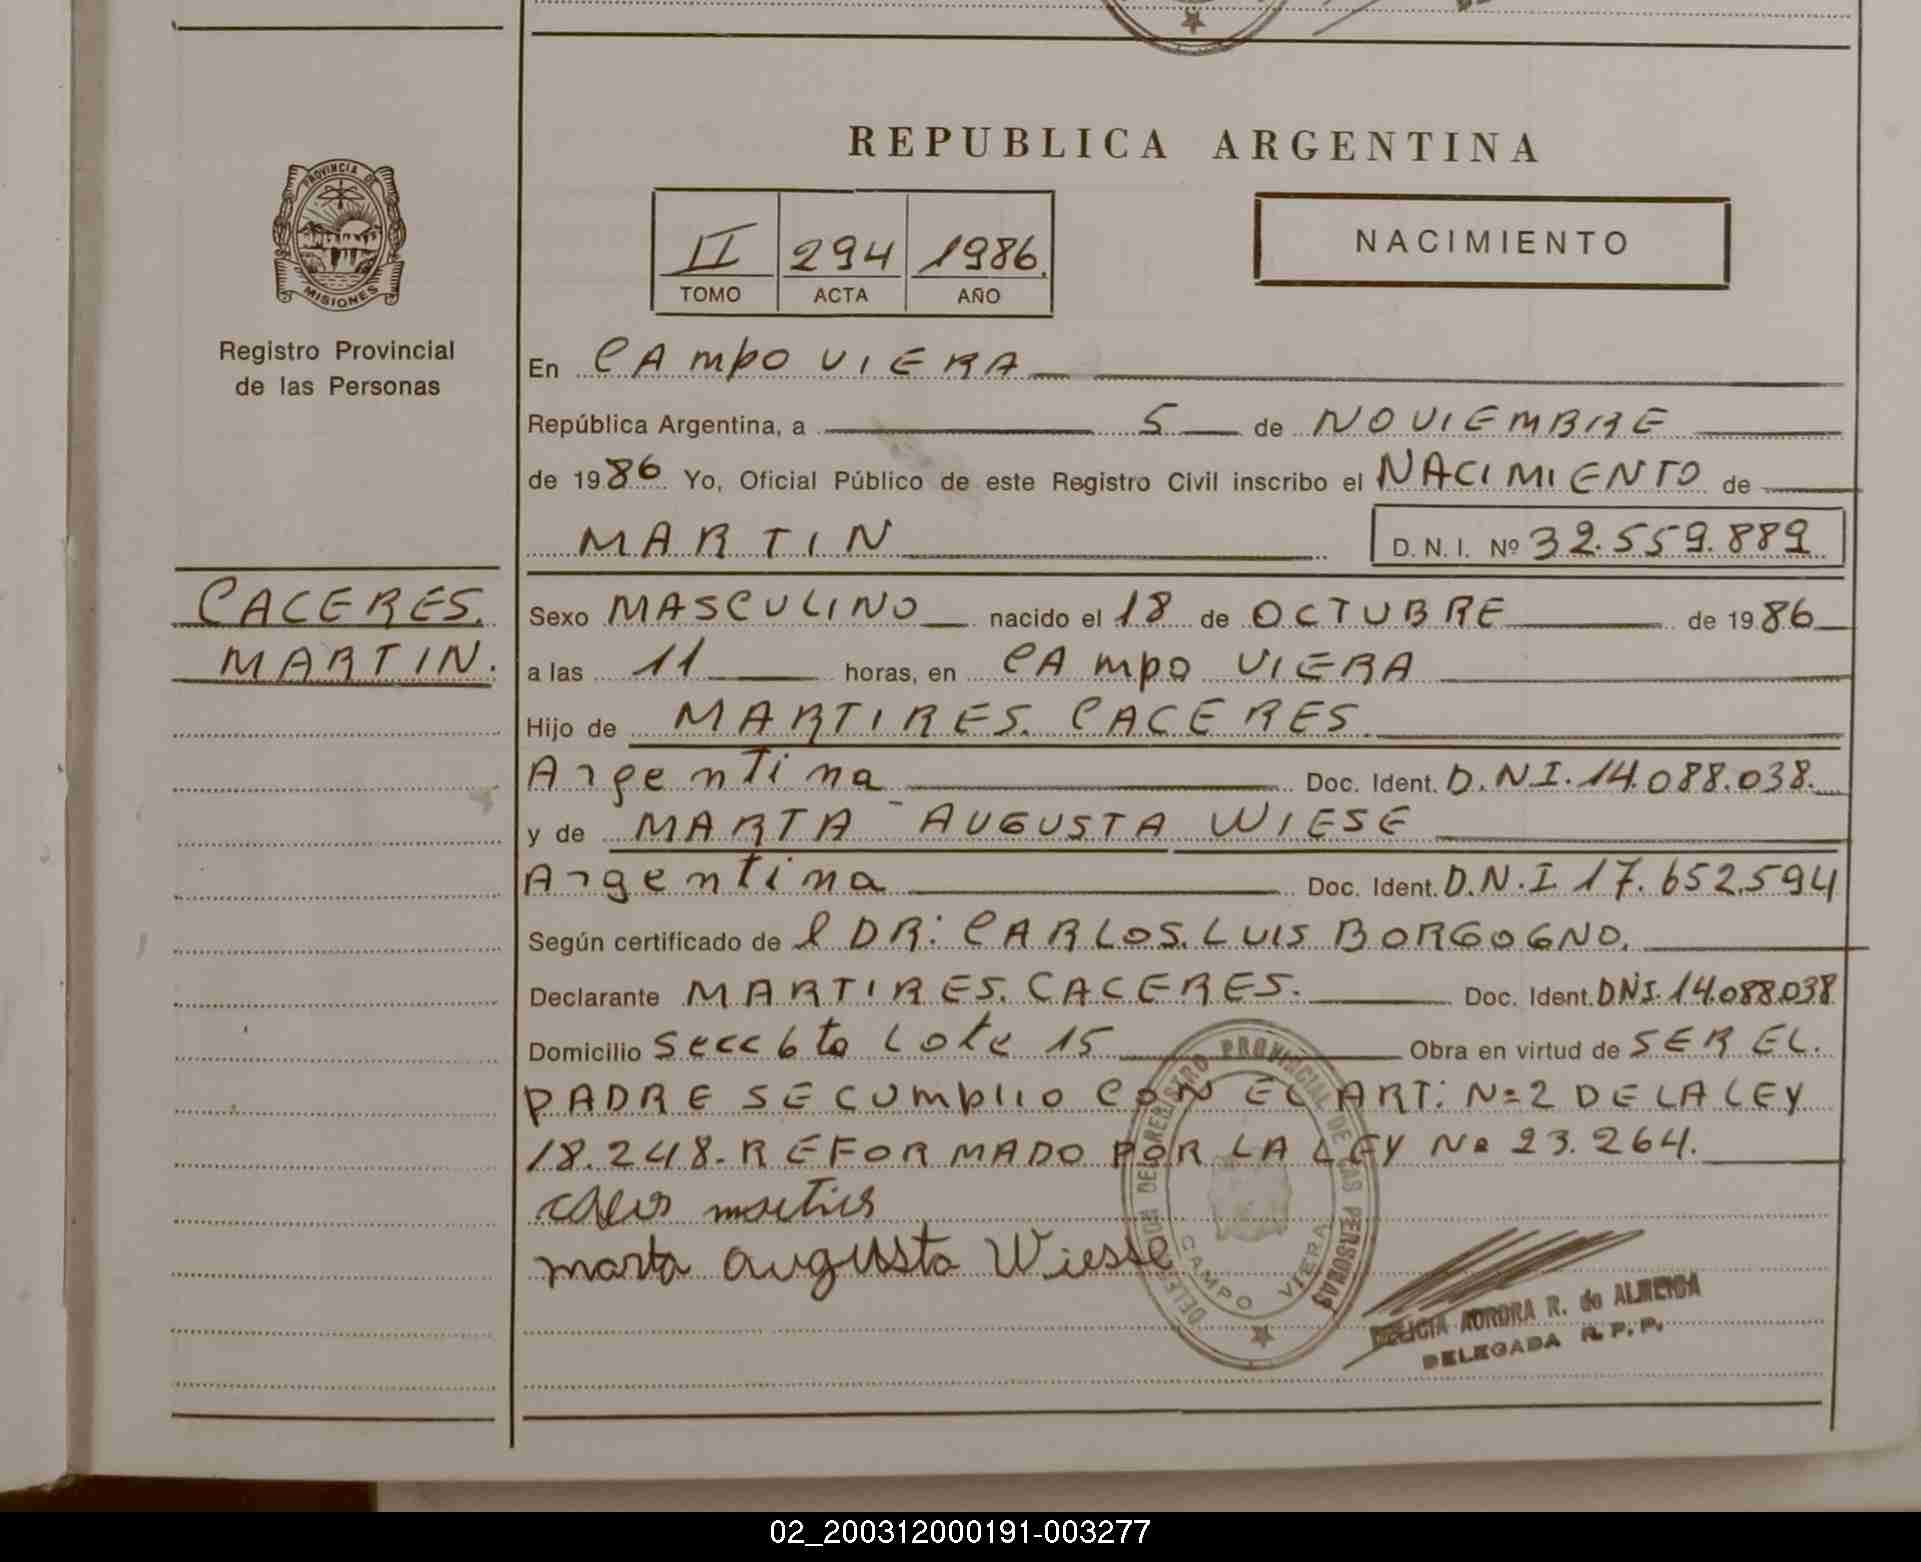 REPUBLICA ARGENTINA
PROVINCIA DE
MISIONES
Registro Provincial
de las Personas
II 294 1986.
TOMO ACTA AÑO
NACIMIENTO
En CAMPO VIERA
República Argentina, a 5 de NOVIEMBRE
de 1986 Yo, Oficial Público de este Registro Civil inscribo el NACIMIENTO de
MARTIN D.N.I. Nº 32.559.889
CACERES.
MARTIN.
Sexo MASCULINO nacido el 18 de OCTUBRE de 1986
a las 11 horas, en CAMPO VIERA
Hijo de MARTIRES. CACERES.
Argentina Doc. Ident. D.N.I. 14.088.038.
y de MARTA AUGUSTA WIESE
Argentina Doc. Ident. D.N.I 17.652.594
Según certificado de l DR: CARLOS. LUIS BORGOGNO.
Declarante MARTIRES. CACERES. Doc. Ident. DNI. 14.088.038
Domicilio Secc 6ta Lote 15 Obra en virtud de SER EL.
PADRE SE CUMPLIO CON EL ART: Nº 2 DE LA LEY
18.248. REFORMADO POR LA LEY Nº 23.264.
marta augusta Wiesse
DELEGACION DEL REGISTRO PROVINCIAL DE LAS PERSONAS
CAMPO VIERA
DELICIA AURORA R. de ALMEIDA
DELEGADA R.P.P.
02_200312000191-003277